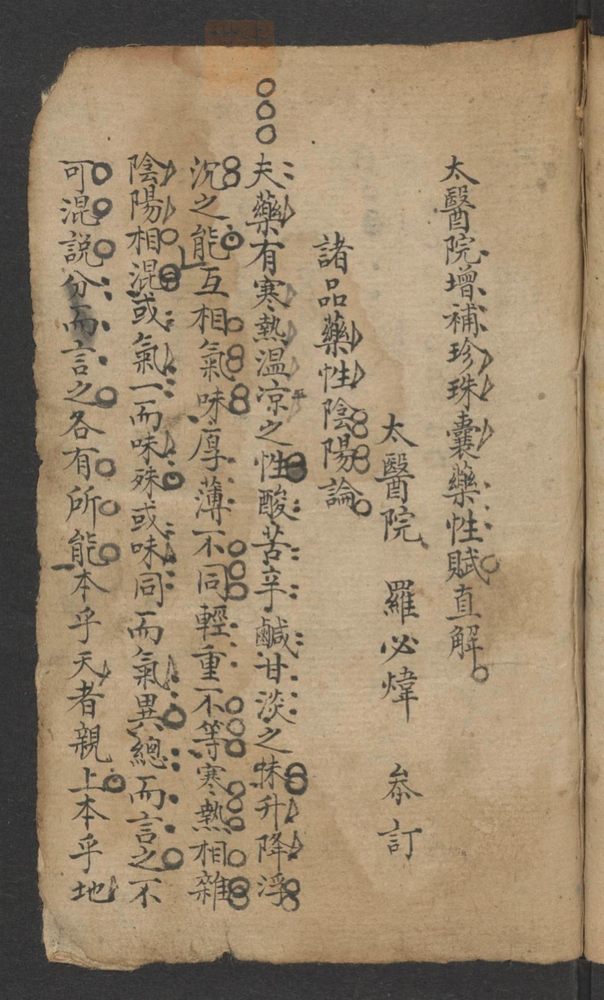 太醫院增補珍珠囊藥性賦直解
太醫院 羅必煒 叅訂
諸品藥性陰陽論
夫藥有寒熱温凉平之性酸苦辛鹹甘淡之味升降浮
沉之能互相氣味厚薄不同輕重不等寒熱相雜
陰陽相混或氣一而味殊或味同而氣異總而言之不
可混説分而言之各有所能本乎天者親上本乎地